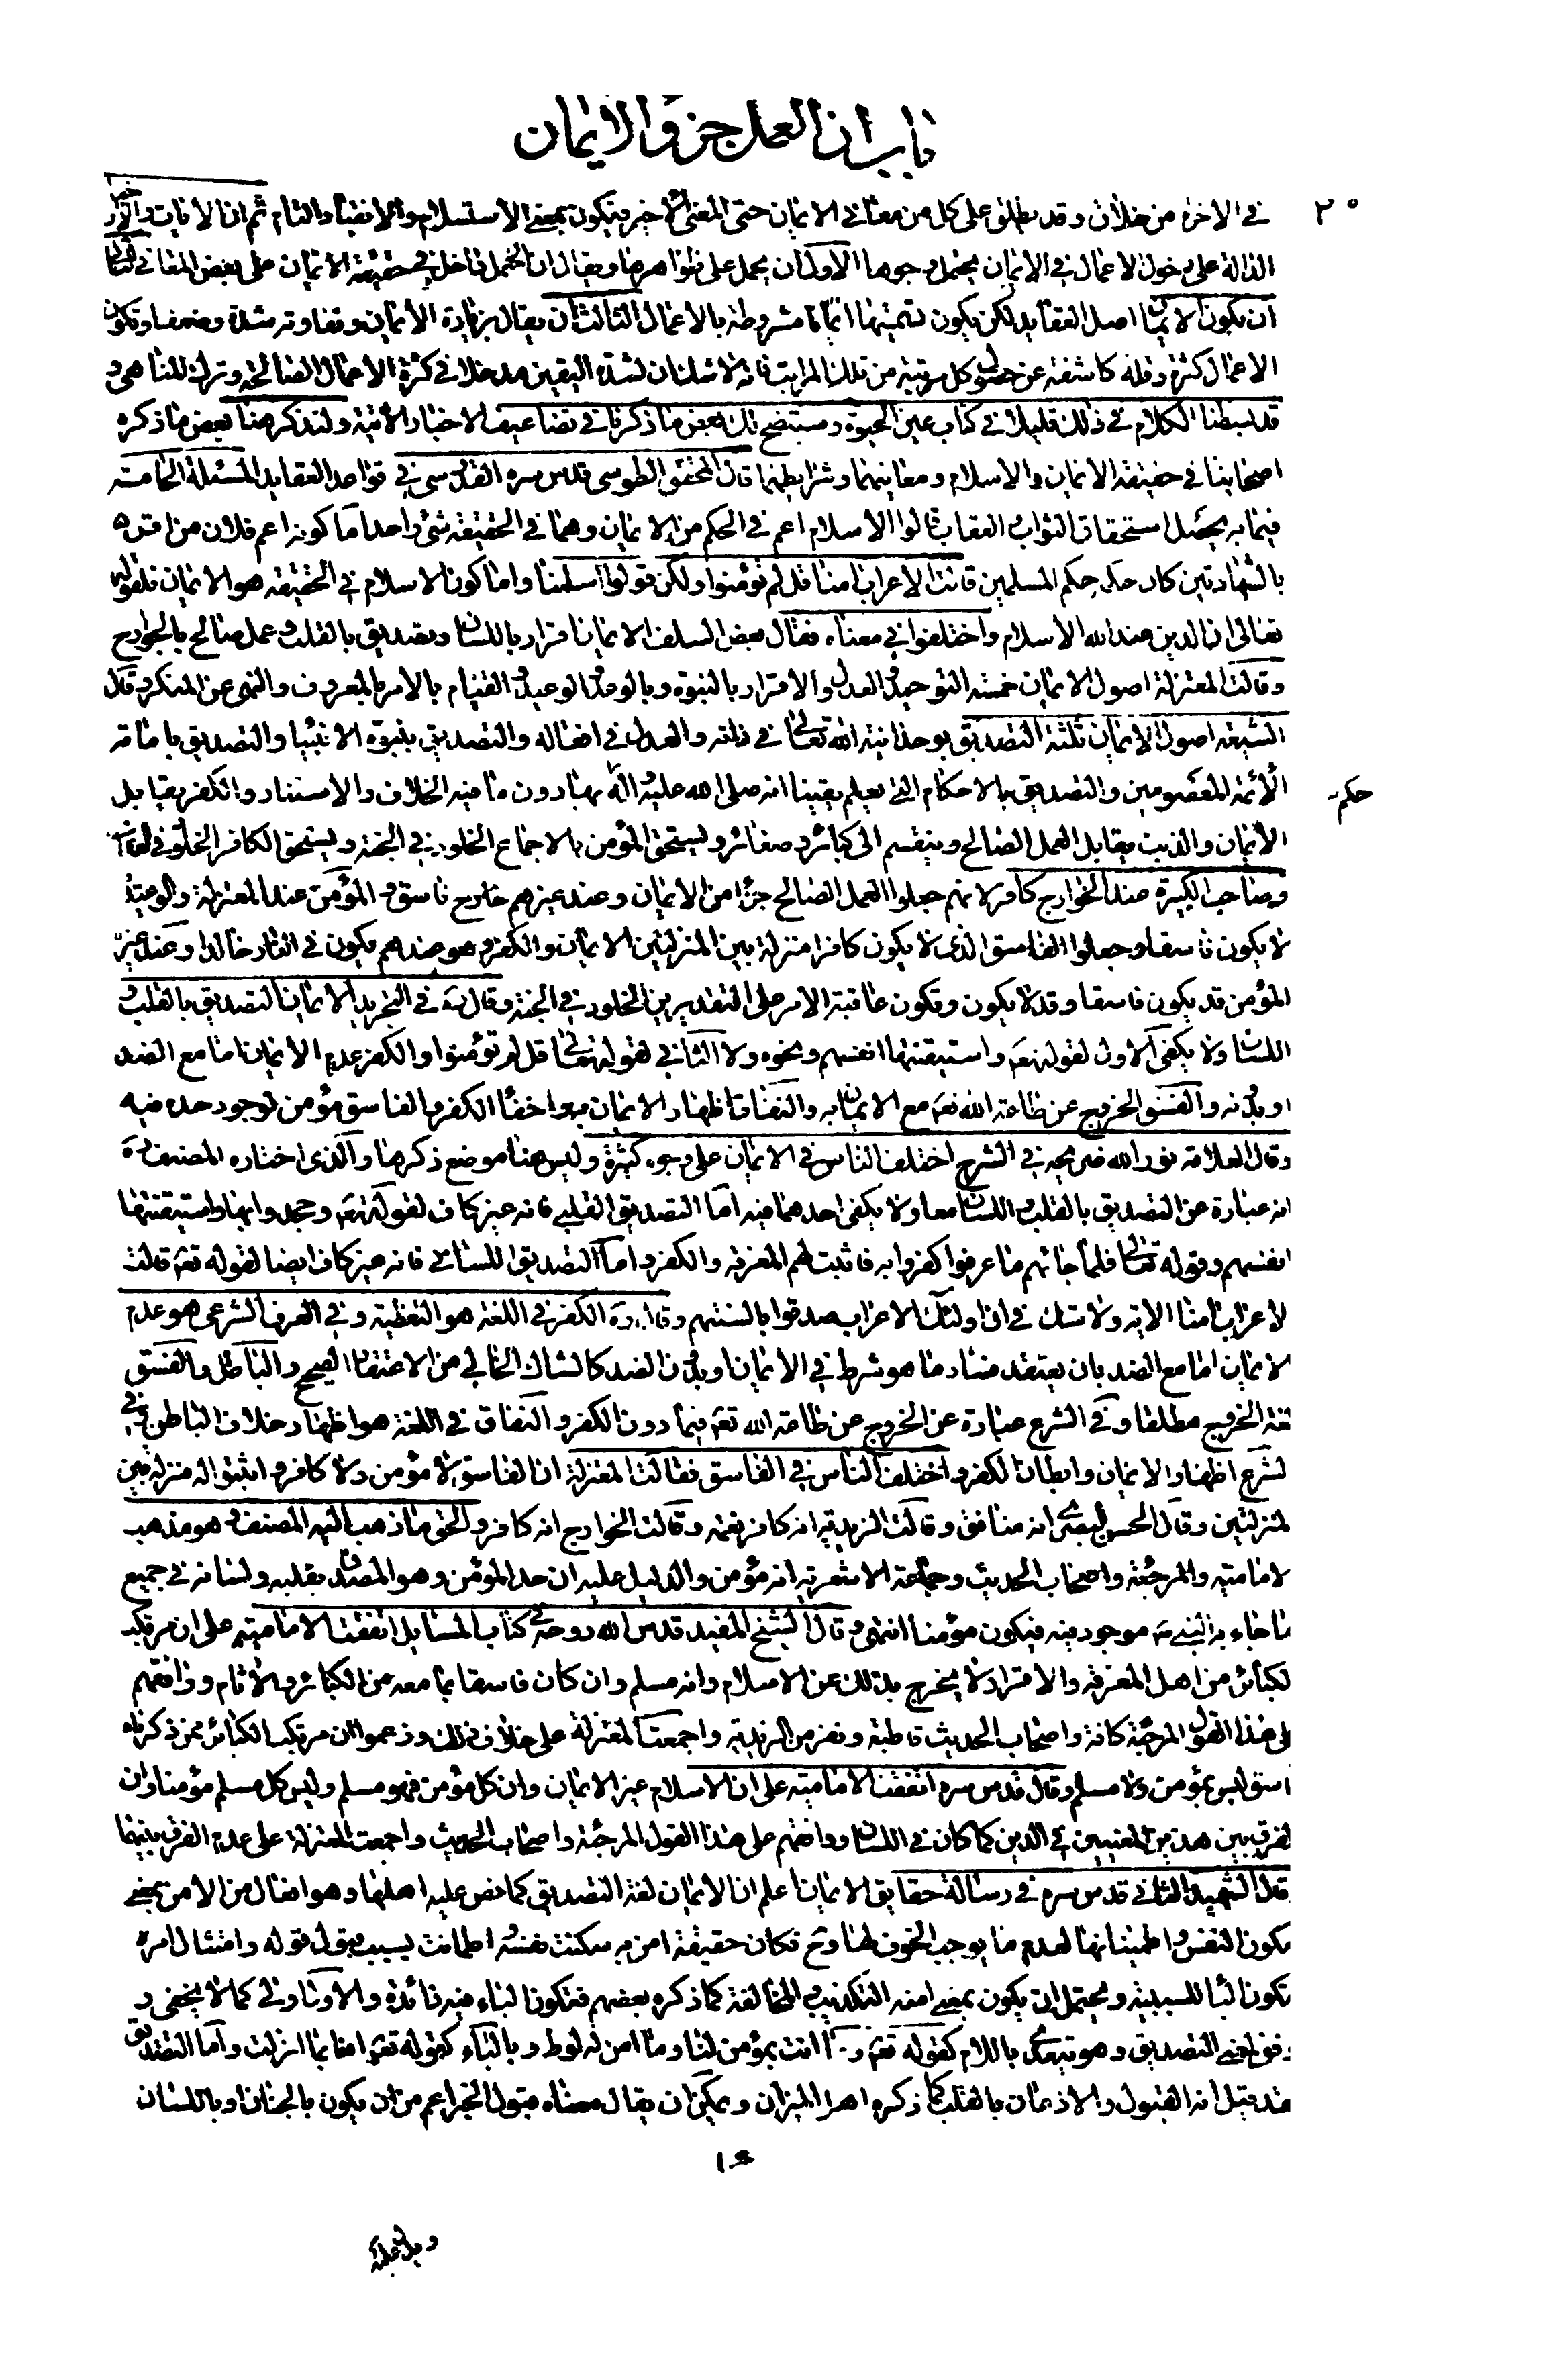 باب ان العمل جزء الايمان
٢٠
في الاخرة من خلاف وقد يطلق على كل من معنا في الايمان حتى المعنى الاخير فيكون بمعنى الاستسلام والانقياد التام ثم ان الايات والاخبار
الدالة على دخول الاعمال في الايمان يحتمل وجوها الاول ان يحمل على ظواهرها ويقال ان العمل داخل في حقيقة الايمان على بعض المعاني الثاني
ان يكون الايمان اصل العقايد لكن يكون تسميتها ايمانا مشروطة بالاعمال الثالث ان يقال بزيادة الايمان وتفاوته شدة وضعفا وتكون
الاعمال كثرة وقلة كاشفة عن حصول كل مرتبة من تلك المراتب فانه لا شك ان لشدة اليقين مدخلا في كثرة الاعمال الصالحة وترك المناهي و
قد بسطنا الكلام في ذلك قليلا في كتاب عين الحيوة وستضح لك بعض ما ذكرنا في تضاعيف الاخبار الاتية ولنذكر هنا بعض ما ذكره
اصحابنا في حقيقة الايمان والاسلام ومعانيهما وشرايطهما قال المحقق الطوسي قدس سره القدسي في قواعد العقايد المسئلة الخامسة
فيما به يحصل استحقاق الثواب والعقاب قالوا الاسلام اعم في الحكم من الايمان وهما في الحقيقة شئ واحد اما كونه اعم فلان من اقر
بالشهادتين كان حكمه حكم المسلمين قالت الاعراب امنا قل لم تؤمنوا ولكن قولوا اسلمنا واما كون الاسلام في الحقيقة هو الايمان فلقوله
تعالى ان الدين عند الله الاسلام واختلفوا في معناه فقال بعض السلف الايمان اقرار باللسان وتصديق بالقلب وعمل صالح بالجوارح
وقالت المعتزلة اصول الايمان خمسة التوحيد والعدل والاقرار بالنبوة وبالوعد والوعيد والقيام بالامر بالمعروف والنهي عن المنكر وقال
الشيعة اصول الايمان ثلثة التصديق بوحدانية الله تعالى في ذاته والعدل في افعاله والتصديق بنبوة الانبيا والتصديق بامامة
الائمة المعصومين والتصديق بالاحكام التي يعلم يقينا انه صلى الله عليه واله حكم بها دون ما فيه الخلاف والاستناد والكفر يقابل
الايمان والذنب يقابل العمل الصالح وينقسم الى كبائر وصغائر ويستحق المؤمن بالاجماع الخلود في الجنة ويستحق الكافر الخلود في العقاب
وصاحب الكبيرة عند الخوارج كافر لانهم جعلوا العمل الصالح جزءا من الايمان وعند غيرهم خارج فاسق والمؤمن عند المعتزلة والوعيدية
لا يكون فاسقا وجعلوا الفاسق الذي لا يكون كافرا منزلة بين المنزلتين الايمان والكفر وهو عندهم يكون في النار خالدا وعند غيرهم
المؤمن قد يكون فاسقا وقد لا يكون وتكون عاقبة الامر على التقديرين الخلود في الجنة وقال ره في التجريد الايمان التصديق بالقلب و
اللسان ولا يكفي الاول لقوله تعم واستيقنتها انفسهم ونحوه ولا الثاني لقوله تعالى قل لم تؤمنوا والكفر عدم الايمان اما مع الضد
او بدونه والفسق الخروج عن طاعة الله تعم مع الايمان به والنفاق اظهار الايمان به واخفاء الكفر والفاسق مؤمن لوجود حده فيه
وقال العلامة نور الله ضريحه في الشرح اختلف الناس في الايمان على وجوه كثيرة وليس هنا موضع ذكرها والذي اختاره المصنف ره
انه عبارة عن التصديق بالقلب واللسان معا ولا يكفي احدهما فيه اما التصديق القلبي فانه غير كاف لقوله تعم وجحدوا بها واستيقنتها
انفسهم وقوله تعالى فلما جائهم ما عرفوا كفروا به فاثبت لهم المعرفة والكفر واما التصديق اللساني فانه غير كاف ايضا لقوله تعم قالت
لاعراب امنا الاية ولا شك في ان اولئك الاعراب صدقوا بالسنتهم وقال ره الكفر في اللغة هو التغطية وفي العرف الشرعي هو عدم
لايمان اما مع الضد بان يعتقد فساد ما هو شرط في الايمان او بدون الضد كالشاك الخالي من الاعتقاد الصحيح والباطل والفسق
لغة الخروج مطلقا وفي الشرع عبارة عن الخروج عن طاعة الله تعم فيما دون الكفر والنفاق في اللغة هو اظهار خلاف الباطن وفي
لشرع اظهار الايمان وابطان الكفر واختلف الناس في الفاسق فقالت المعتزلة ان الفاسق لا مؤمن ولا كافر واثبتوا له منزلة بين
لمنزلتين وقال الحسن البصري انه منافق وقالت الزيدية انه كافر نعمة وقالت الخوارج انه كافر والحق ما ذهب اليه المصنف وهو مذهب
لامامية والمرجئة واصحاب الحديث وجماعة الاشعرية انه مؤمن والدليل عليه ان حد المؤمن وهو المصدق بقلبه ولسانه في جميع
ما جاء به النبي ص موجود فيه فيكون مؤمنا انتهى وقال الشيخ المفيد قدس الله روحه في كتاب المسايل اتفقت الامامية على ان مرتكب
لكبائر من اهل المعرفة والاقرار لا يخرج بذلك عن الاسلام وانه مسلم وان كان فاسقا بما معه من الكبائر والاثام ووافقهم
لى هذا القول المرجئة كافة واصحاب الحديث قاطبة ونفر من الزيدية واجمعت المعتزلة على خلاف ذلك وزعموا ان مرتكب الكبائر ممن ذكرناه
اسق ليس بمؤمن ولا مسلم وقال قدس سره اتفقت الامامية على ان الاسلام غير الايمان وان كل مؤمن فهو مسلم وليس كل مسلم مؤمنا وان
لفرق بين هذين المعنيين في الدين كما كان في اللسان ووافقهم على هذا القول المرجئة واصحاب الحديث واجمعت المعتزلة على عدم الفرق بينهما
قال الشهيد الثاني قدس سره في رسالة حقايق الايمان اعلم ان الايمان لغة التصديق كما نص عليه اهلها وهو افعال من الامن بمعنى
سكون النفس واطمينانها لعدم ما يوجب الخوف لها وح فكان حقيقة امن به سكنت نفسه واطمانت بسبب قبول قوله وامتثال امره
تكون البا للسببية ويحتمل ان يكون بمعنى امنه التكذيب والمخالفة كما ذكره بعضهم فتكون الباء فيه زائدة والاول اولى كما لا يخفى و
وفق لمعنى التصديق وهو يتعدى باللام كقوله تعم وما انت بمؤمن لنا وما امن له لوط وبالباء كقوله تعم امنا بما انزلت واما التصديق
فقد قيل انه القبول والاذعان بالقلب كما ذكره اهل الميزان ويمكن ان يقال معناه قبول الخبر اعم من ان يكون بالجنان او باللسان
حكم
ويدل عليه